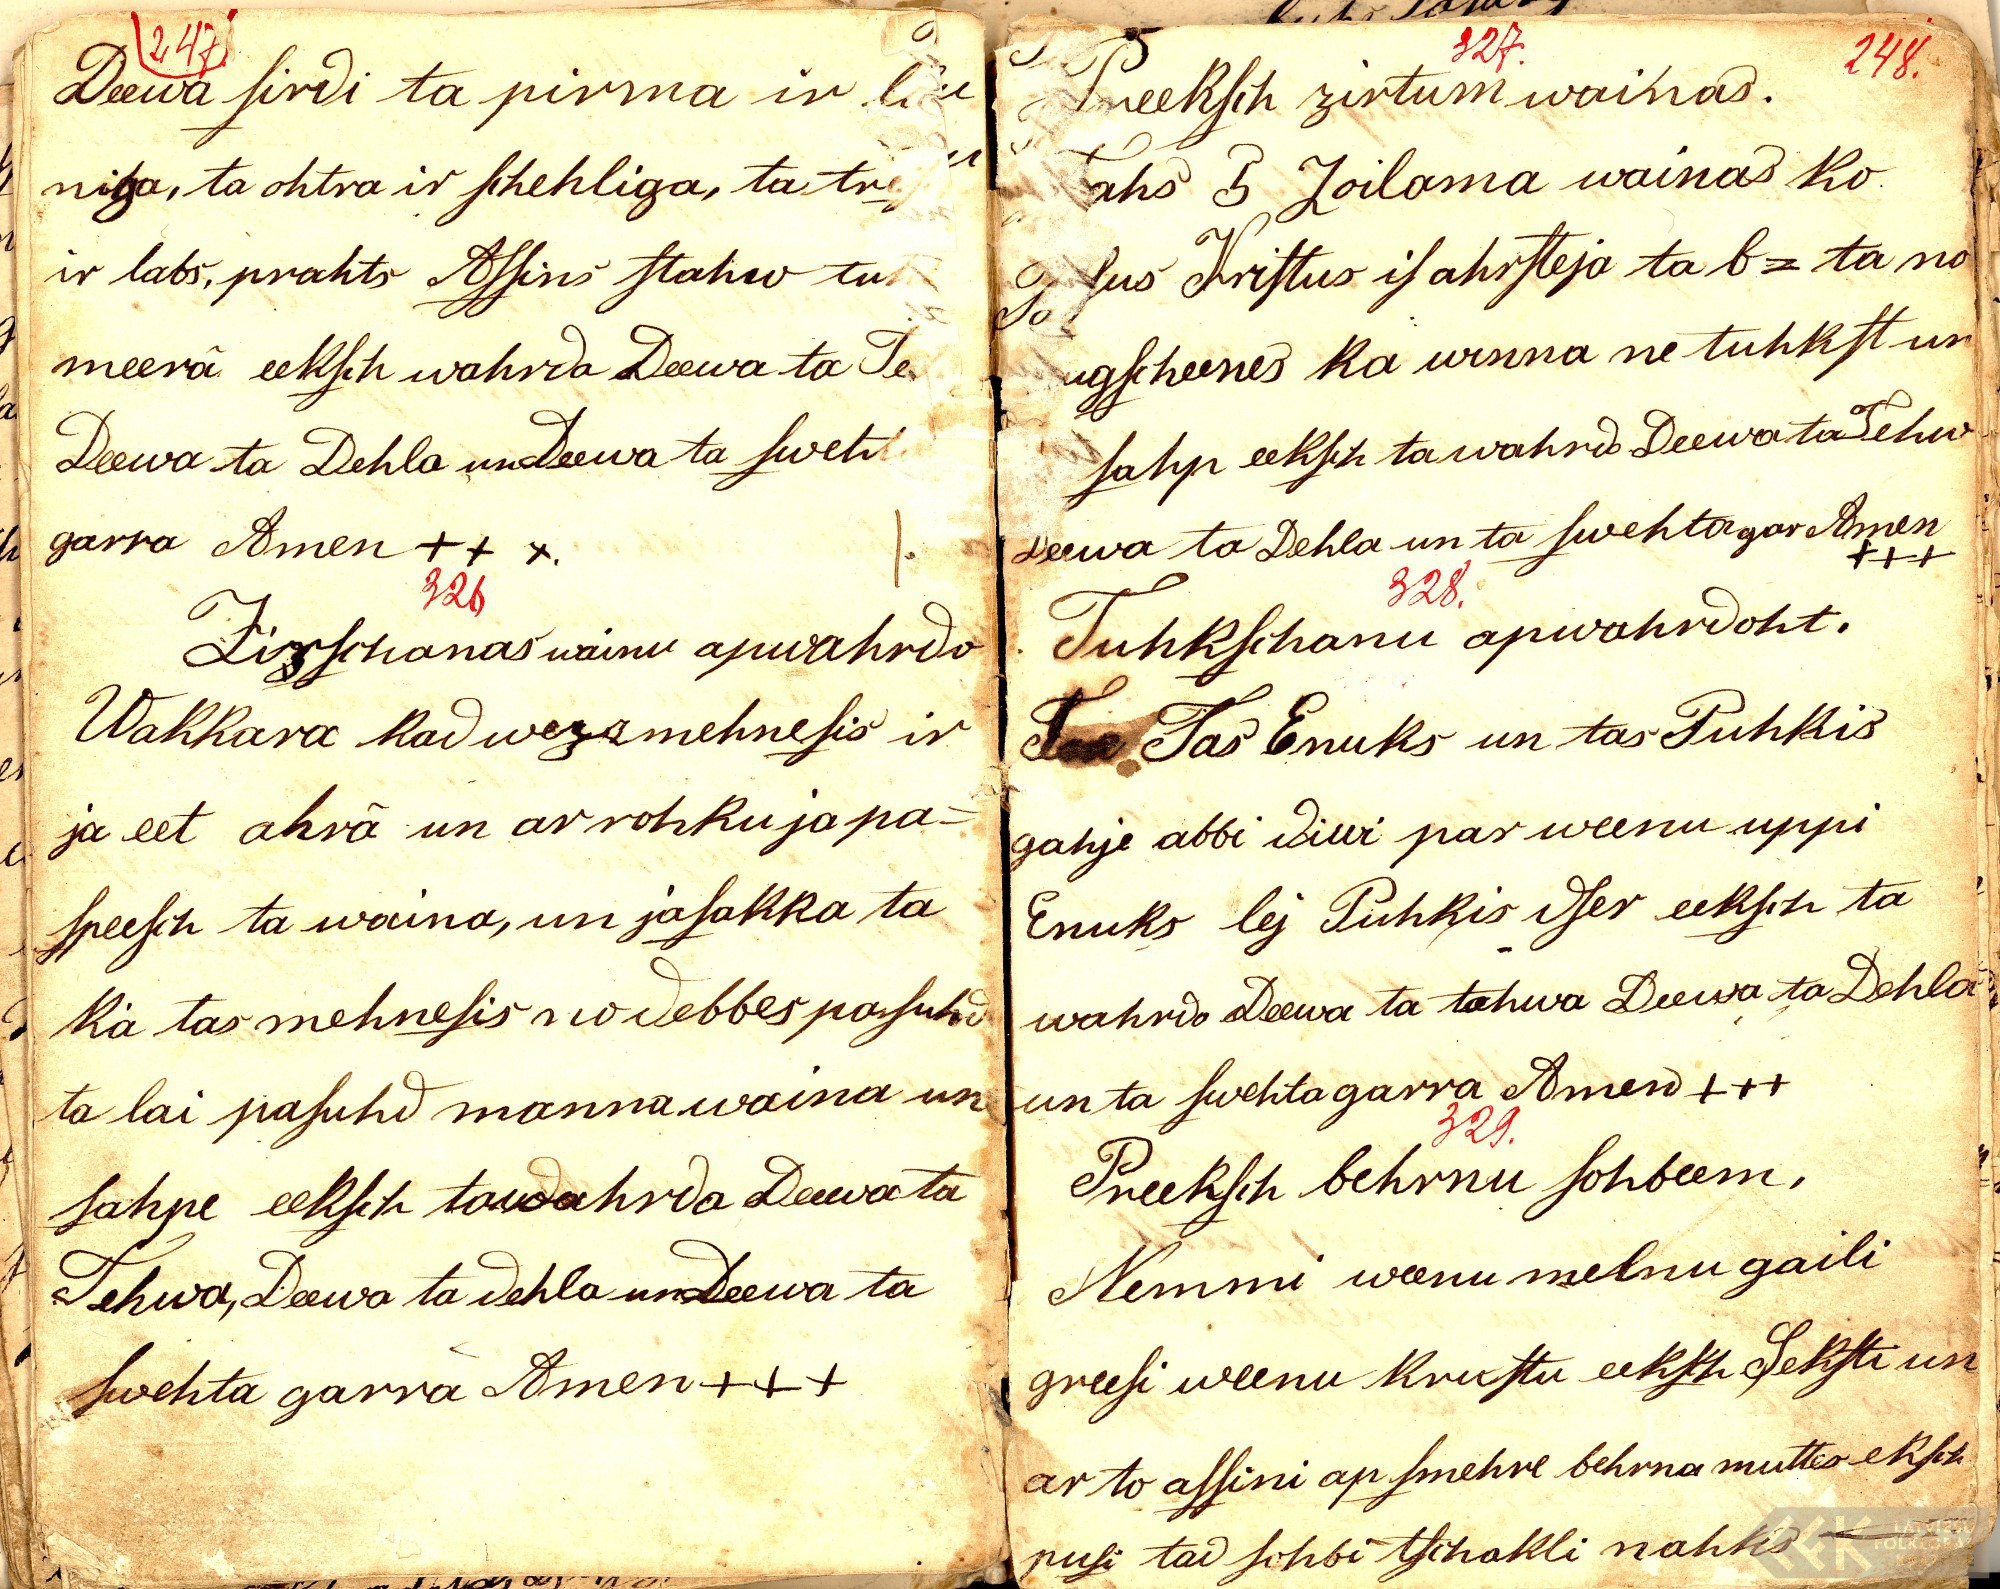 247
Deewa sirdi ta pirma ir
niga, ta ohtra ir schehliga, ta
ir labs, prahts Assins stahw
meerā eeksch wahrda Deewa ta
Deewa ta Dehla un Deewa ta
garra Amen + + +.
326
Zirschanas wainu apwahrdo
Wakkara kad wezs mehnesis ir
ja eet ahrā un ar rohku japa=
speesch ta waina, un jasakka ta
Ka tas mehnesis no debbes pasuhd
ta lai pasuhd manna waina un
sahpe eeksch ta wahrda Deewa ta
Tehwa, Deewa ta dehla un Deewa ta
swehta garra Amen + + +
248.
327.
Preeksch zirtum wainas.
Tahs 5 Zoilama wainas ko
Kristus isahrsteja ta b = ta no
ka winna ne tuhkst un
sahp eeksch ta wahrd Deewa ta Tehw
Deewa ta Dehla un ta swehta gar Amen
+ + +
328.
Tuhkschanu apwahrdoht.
Tas Enuks un tas Puhkis
gahje abbi diwi par weenu uppi
Enuks lej Puhkis dser eeksch ta
wahrdo Deewa ta tehwa Deewa ta Dehla
un ta swehta garra Amen + + +
329.
Preeksch behrnu sohbeem.
Nemmi weenu melnu gaili
greesi weenu krustu eeksch Seksti un
ar to assini apsmehre behrna muttes eksch
pusi tad sohbi tschakli nahks